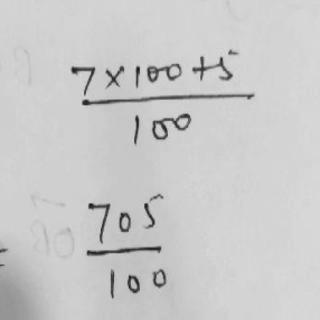 7×100+5
100
= 705
100